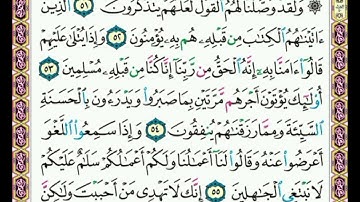 ۞ وَلَقَدْ وَصَّلْنَا لَهُمُ الْقَوْلَ لَعَلَّهُمْ يَتَذَكَّرُونَ ٥١ الَّذِينَ
ءَاتَيْنَٰهُمُ الْكِتَٰبَ مِن قَبْلِهِۦ هُم بِهِۦ يُؤْمِنُونَ ٥٢ وَإِذَا يُتْلَىٰ عَلَيْهِمْ
قَالُوٓا۟ ءَامَنَّا بِهِۦٓ إِنَّهُ الْحَقُّ مِن رَّبِّنَآ إِنَّا كُنَّا مِن قَبْلِهِۦ مُسْلِمِينَ ٥٣
أُو۟لَٰٓئِكَ يُؤْتَوْنَ أَجْرَهُم مَّرَّتَيْنِ بِمَا صَبَرُوا۟ وَيَدْرَءُونَ بِالْحَسَنَةِ
السَّيِّئَةَ وَمِمَّا رَزَقْنَٰهُمْ يُنفِقُونَ ٥٤ وَإِذَا سَمِعُوا۟ اللَّغْوَ
أَعْرَضُوا۟ عَنْهُ وَقَالُوا۟ لَنَآ أَعْمَٰلُنَا وَلَكُمْ أَعْمَٰلُكُمْ سَلَٰمٌ عَلَيْكُمْ
لَا نَبْتَغِى الْجَٰهِلِينَ ٥٥ إِنَّكَ لَا تَهْدِى مَنْ أَحْبَبْتَ وَلَٰكِنَّ